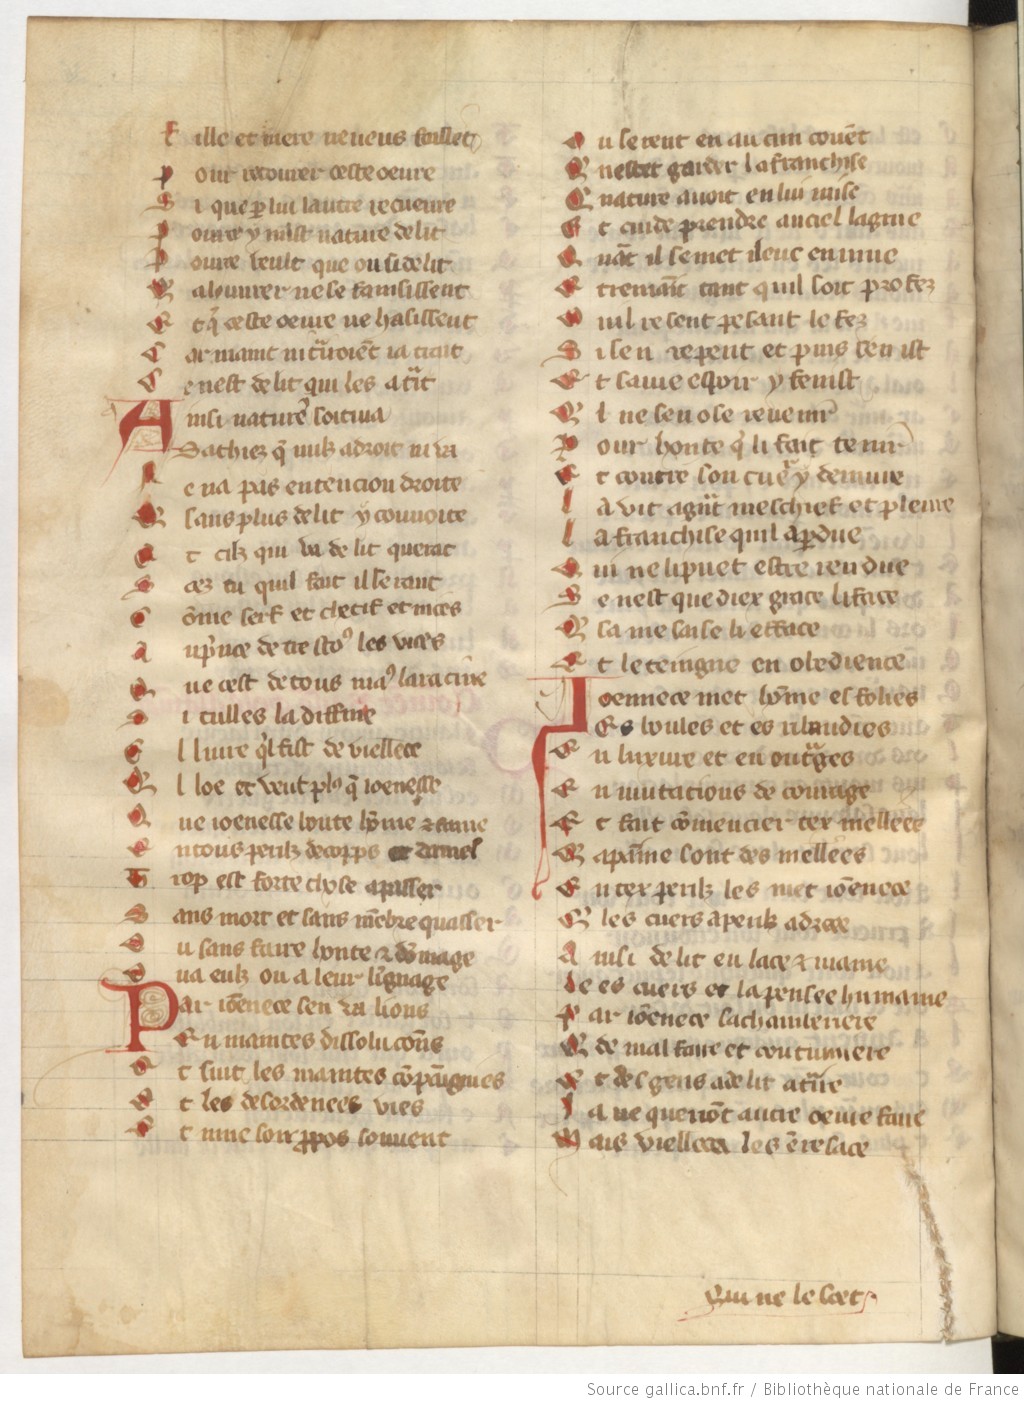 F ille et mere ne veus faillet
P our recouvrer ceste oeure
S i que p lui lautre requeure
P our ce y mist nature delit
P our ce veult que on si delit
Q al ouvrer ne se fainsissent
E t q̃ ceste oeure ne haissent
C ar maint ni t̃roient ia trait
S e nest delit qui les a t̃it
A insi nature soutiva
Sachiez q̃ nulz a droit ni va
N e na pas entencion droite
Q sans plus delit y couvoite
C t cilz qui va delit querant
S cez tu quil fait il se rant
C õme serf et chetif et nices
A u p̃nce de trestoꝰ les vices
Q ue cest de tous maꝰ la racine
S i tulles la diffine
E l livre q̃l fist de viellece
Q l loe et veut plꝰ q̃ ioenesse
Q ue ioenesse boute hõme & fame
E n tous perilz de corps et dame
T rop est forte chose a passer
S ans mort et sans mẽbre quasser
O u sans faire honte & dõmage
O u a eulz ou a leur lignage
P ar iõenece sen va lions
E n maintes dissolucõns
E t suit les maintes cõpaignies
E t les desordenees vies
E t mue son ꝓpos souvent
O u se rent en aucun couẽt
Q nescet garder la franchise
Q nature avoit en lui mise
E t cuide prendre au ciel la grue
Q uãt il se met ileuc en mue
E t remaĩt tant quil soit profez
O u il resent pesant le fez
S i sen repent et puis sen ist
E t sa vie espoir y fenist
Q l ne sen ose revenir
P our honte q̃ li fait tenir
E t contre son cuer y demeure
L a vit a grãt meschief et pleure
L a franchise quil a p̃due
Q ui ne li puet estre rendue
S e nest que diex grace li face
Q sa mesaise li efface
E t le teingne en obedience
J oennece met hõme es folies
Es boules et es ribaudies
E n luxure et en out̃ges
E n mutacions de courage
E t fait cõmencier tex mellees
Q a paine sont desmellees
E n tex perilz les met iõenece
Q les cuers a perilz adrece
A insi delit enlace & maine
Le es cuers et la pensee humaine
P ar iõenece sa chamberiere
Q de mal faire et coutumiere
E t des gens a delit at̃ire
J a ne queriõt autre oeuvre faire
M ais viellece les ẽ resace
Qui ne le scet